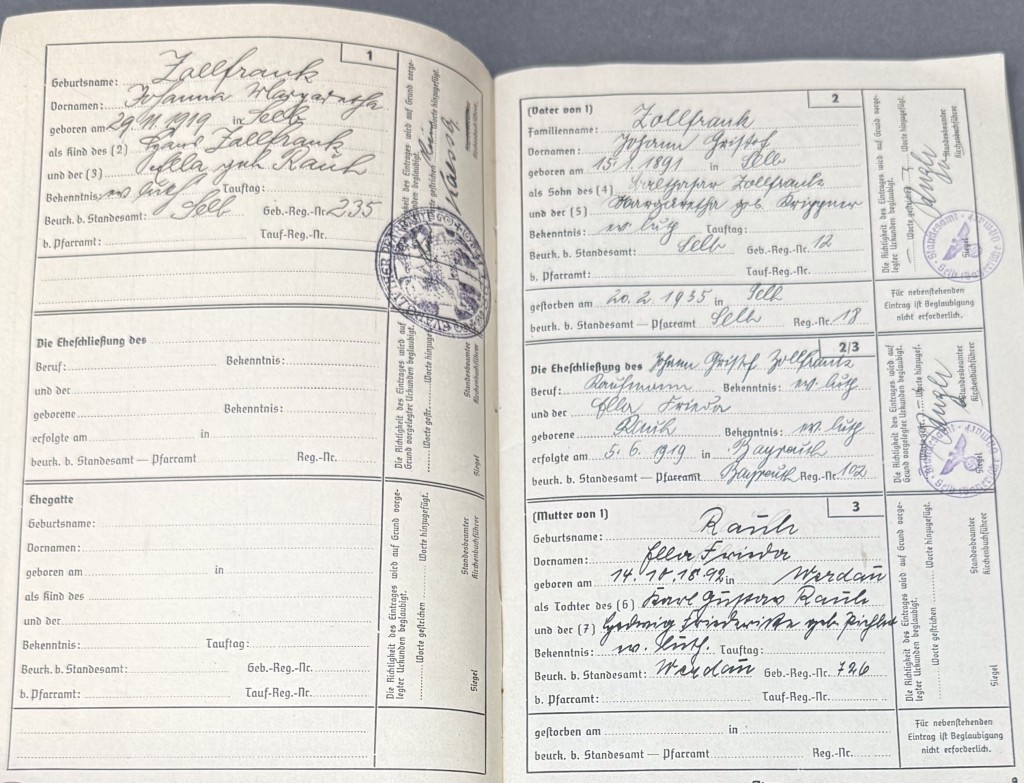 1
Geburtsname: Zollfrank
Vornamen: Johanna Margaretha
geboren am 29.11.1919 in Selb
als Kind des (2) Hans Zollfrank
und der (3) Ella geb. Rauh
Bekenntnis: ev. luth. Tauftag:
Beurk. b. Standesamt: Selb Geb.-Reg.-Nr. 235
b. Pfarramt: Tauf-Reg.-Nr.
Die Richtigkeit des Eintrages wird auf Grund vorgelegter Urkunden beglaubigt.
Worte gestrichen Worte hinzugefügt.
Die Eheschließung des
Beruf: Bekenntnis:
und der
geborene Bekenntnis:
erfolgte am in
beurk. b. Standesamt — Pfarramt Reg.-Nr.
Die Richtigkeit des Eintrages wird auf Grund vorgelegter Urkunden beglaubigt.
Worte gestr. Worte hinzugef.
Standesbeamter
Kirchenbuchführer
Siegel
Ehegatte
Geburtsname:
Vornamen:
geboren am in
als Kind des
und der
Bekenntnis: Tauftag:
Beurk. b. Standesamt: Geb.-Reg.-Nr.
b. Pfarramt: Tauf-Reg.-Nr.
Die Richtigkeit des Eintrages wird auf Grund vorgelegter Urkunden beglaubigt.
Worte gestrichen Worte hinzugefügt.
Standesbeamter
Kirchenbuchführer
Siegel
2
(Vater von 1)
Familienname: Zollfrank
Vornamen: Johann Gristof
geboren am 15.1.1891 in Selb
als Sohn des (4) Balthasar Zollfrank
und der (5) Margaretha geb. Krippner
Bekenntnis: ev. luth Tauftag:
Beurk. b. Standesamt: Selb Geb.-Reg.-Nr. 12
b. Pfarramt: Tauf-Reg.-Nr.
gestorben am 20.2.1935 in Selb
beurk. b. Standesamt — Pfarramt Selb Reg.-Nr. 18
Die Richtigkeit des Eintrages wird auf Grund vorgelegter Urkunden beglaubigt.
Worte gestrichen Worte hinzugefügt.
Standesbeamter
Kirchenbuchführer
Siegel
Standesamt
Für nebenstehenden
Eintrag ist Beglaubigung
nicht erforderlich.
2/3
Die Eheschließung des Johann Gristof Zollfrank
Beruf: Kaufmann Bekenntnis: ev. luth
und der Ella Frieda
geborene Rauh Bekenntnis: ev. luth
erfolgte am 5.6.1919 in Bayreuth
beurk. b. Standesamt — Pfarramt Bayreuth Reg.-Nr. 102
Die Richtigkeit des Eintrages wird auf Grund vorgelegter Urkunden beglaubigt.
Worte gestr. Worte hinzugef.
Standesbeamter
Kirchenbuchführer
Siegel
Standesamt
3
(Mutter von 1)
Geburtsname: Rauh
Vornamen: Ella Frieda
geboren am 14.10.1892 in Werdau
als Tochter des (6) Karl Gustav Rauh
und der (7) Hedwig Friederike geb.
Bekenntnis: ev. luth. Tauftag:
Beurk. b. Standesamt: Werdau Geb.-Reg.-Nr. 726
b. Pfarramt: Tauf-Reg.-Nr.
gestorben am in
beurk. b. Standesamt — Pfarramt Reg.-Nr.
Die Richtigkeit des Eintrages wird auf Grund vorgelegter Urkunden beglaubigt.
Worte gestrichen Worte hinzugefügt.
Standesbeamter
Kirchenbuchführer
Siegel
Für nebenstehenden
Eintrag ist Beglaubigung
nicht erforderlich.